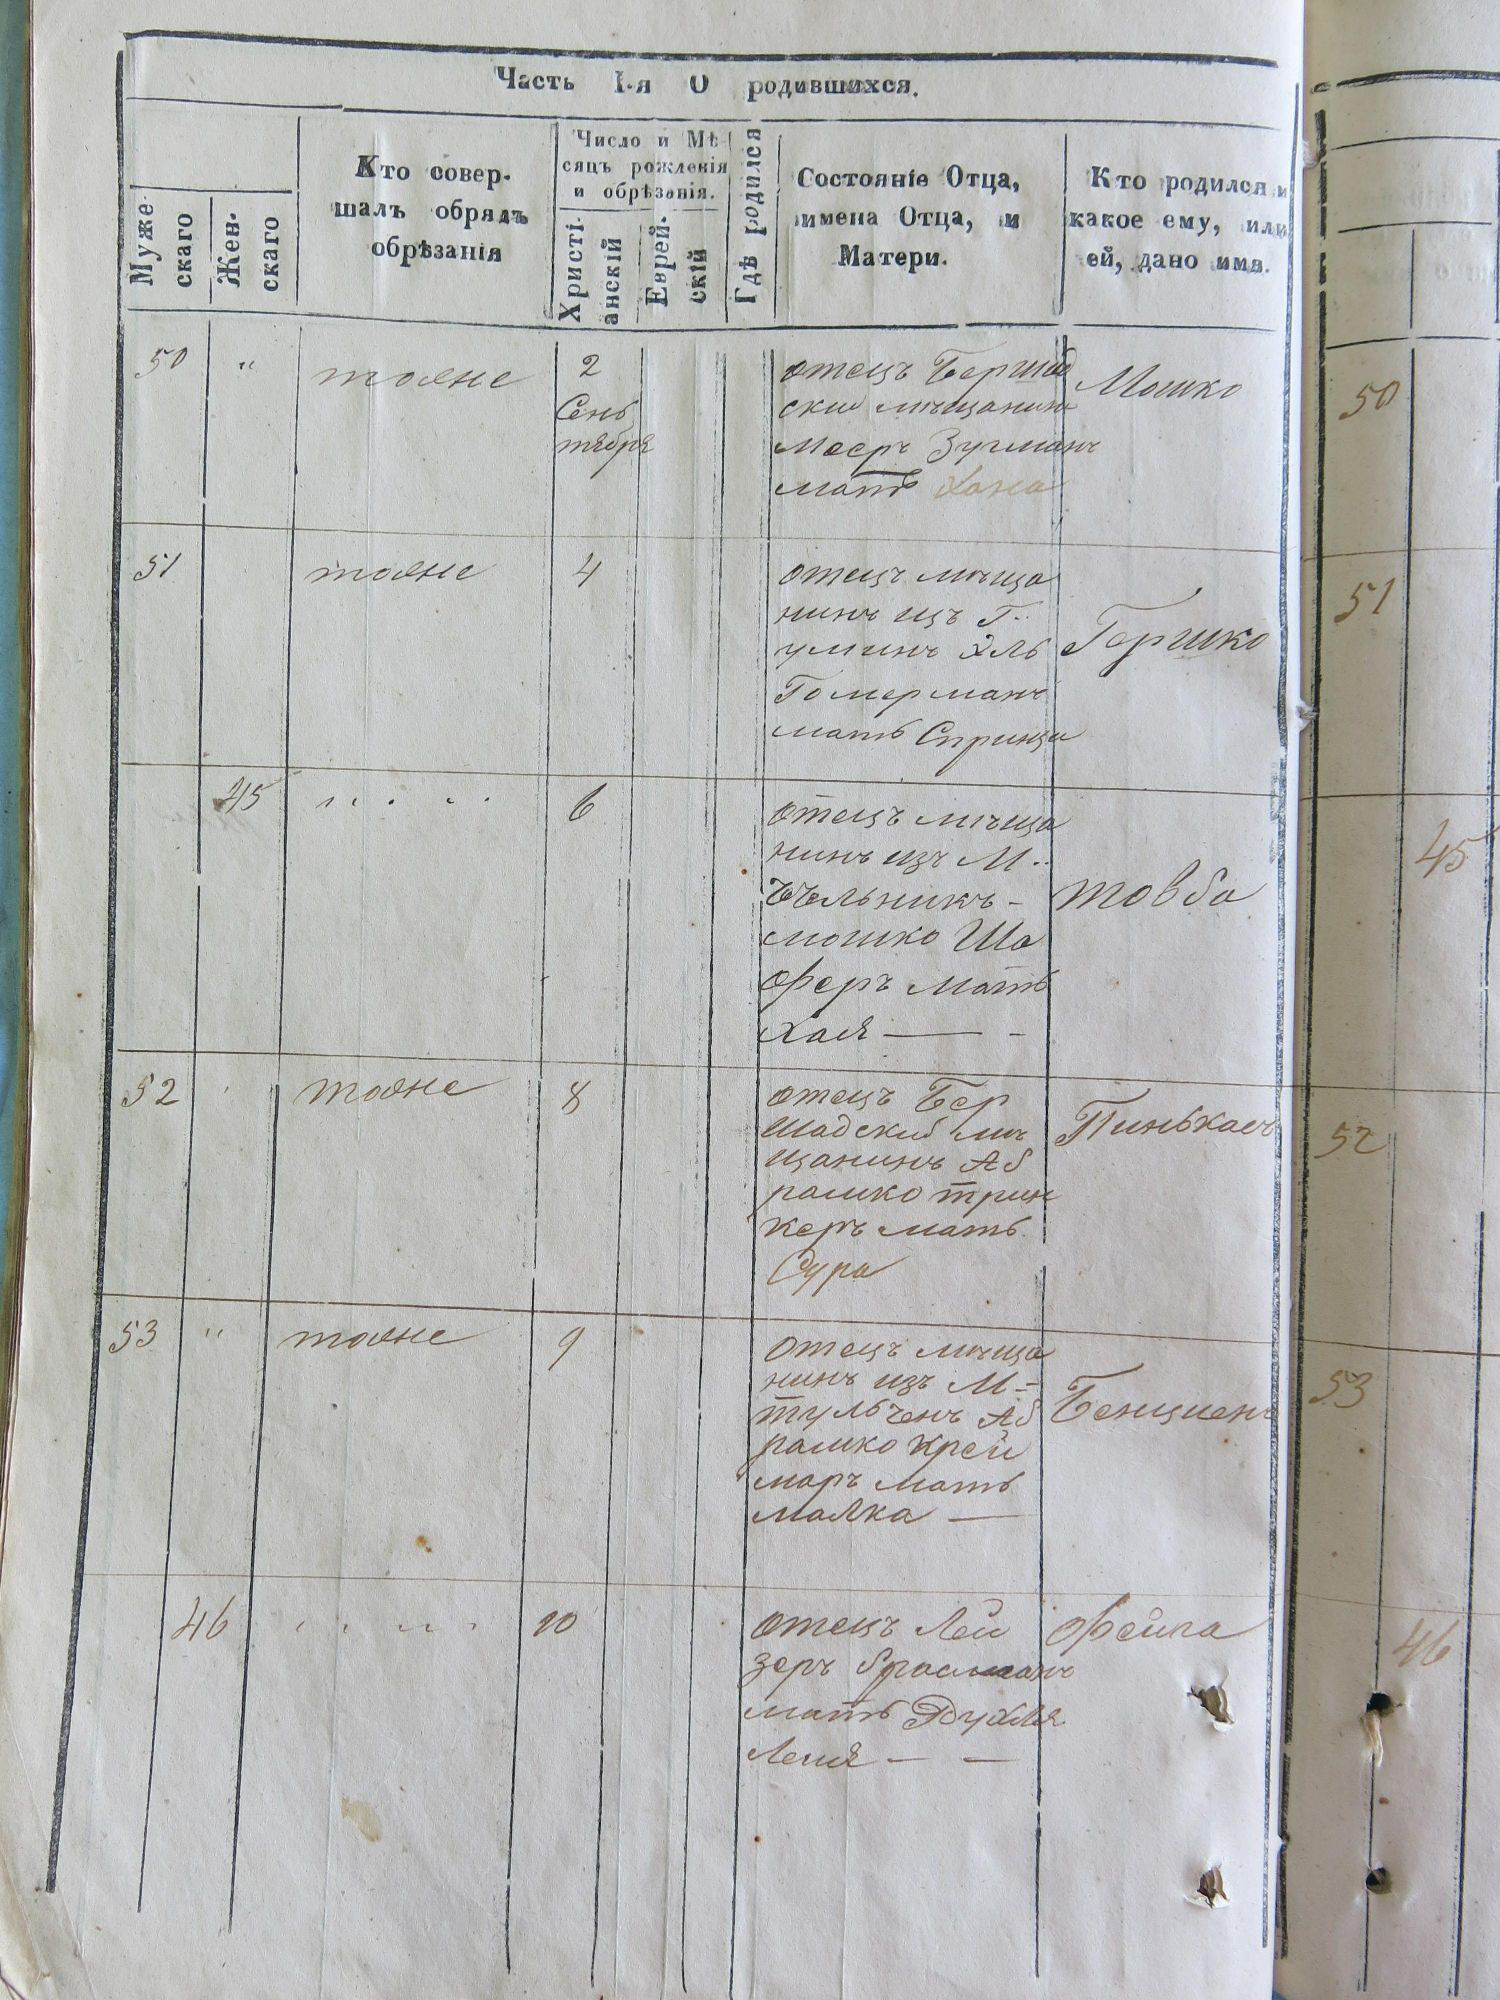 Часть I-я О родившихся.
Муже-
скаго
Жен-
скаго
Кто совер-
шалъ обрядъ
обрѣзанія
Число и Мѣ-
сяцъ рожденія
и обрѣзанія.
Христі-
анскій
Еврей-
скій
Гдѣ родился
Состояніе Отца,
имена Отца, и
Матери.
Кто родился и
какое ему, или
ей, дано имя.
50 " тояне 2
Сень
тября
отецъ Бершад
ский мѣщанинъ
Меер Зугманъ
мать Хана
Мошко
50
51 тояне 4
отецъ мѣща
нинъ изъ Г..
уминъ
Гомерманъ
матьСпринца
Гершко
51
45 6
отецъ мѣща
нинъ изъ М..
мошко Ша
феръ мать
Хая —
товба
45
52 тояне 8
отецъ Бер
шадский мѣ
щанинъ Аб
рамко трин
керъ мать
Сура
Пинькасъ
52
53 " тояне 9
отецъ мѣща
нинъ изъ М-
тульченъ Аб
рамко Крей
маръ мать
малка —
Бенционъ
53
46 10
отецъ Лей
зеръ
мать
Фейга
46